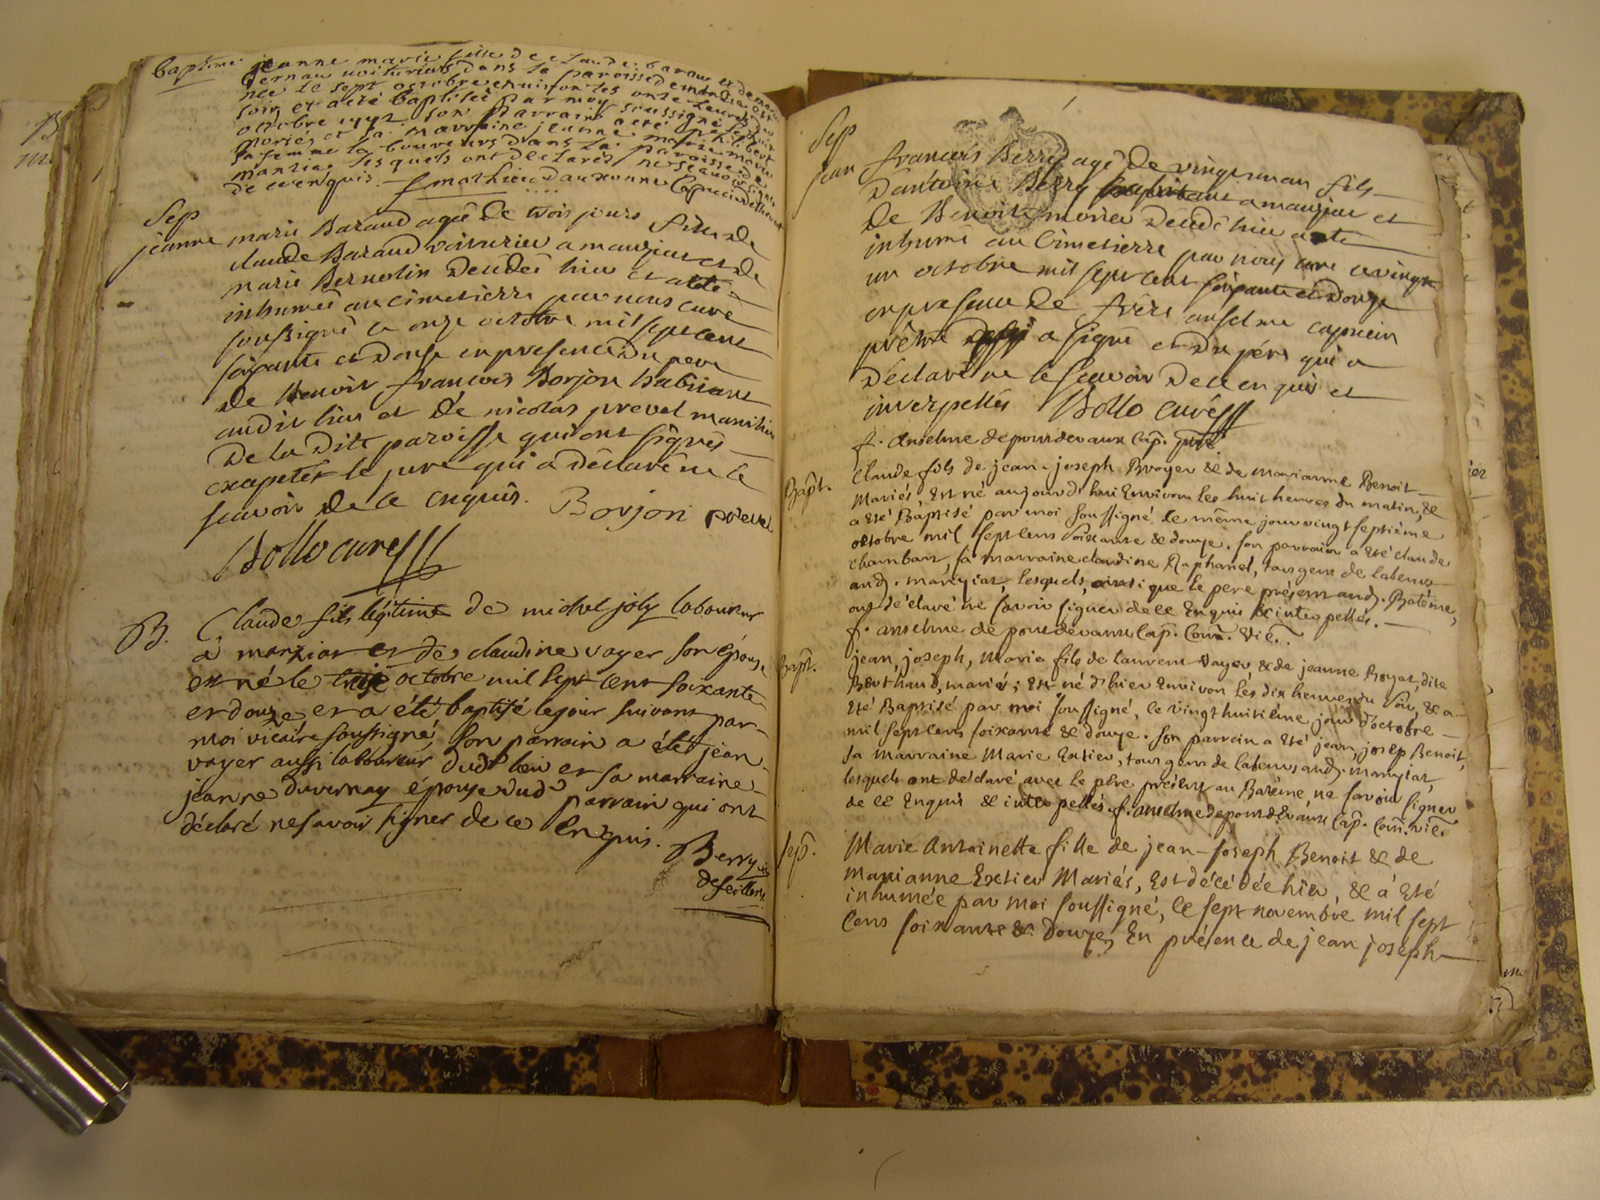 baptême jeanne marie fille de claude baraud et de marie
bernau voiturier dans la paroisse de manziat
née le sept octobre environ les onze heures du
soir et a été baptisée par moy soussigné le
octobre 1772 son parrain a été philibert
mariés et sa marraine jeanne marie
sa femme laboureurs dans la paroisse de
manziat lesquels ont déclarés ne scavoir signer
de ce enquis. f. mathieu d'auxonne capucin
Sep
jeanne marie Baraud agée de trois jours fille de
claude Baraud voiturier a manziat et de
marie Bernolin decedée hier et a eté
inhumée au cimetierre par nous curé
soussigné le onze octobre mil sept cent
soixante et douze en presence du pere
de Benoit francois Borjon habitant
audit lieu et de nicolas prevel manilier
de la dite paroisse qui ont signés
exepter le pere qui a déclaré ne le
scavoir de ce enquis. Borjon prevel
Bollo curé
B. Claude fils légitime de michel joly laboureur
à manziat et de claudine voyer son épouse
est né le treize octobre mil sept cent soixante
et douze et a été baptisé le jour suivant par
moi vicaire soussigné, son parrain a été jean
voyer aussi laboureur dudt lieu et sa marraine
jeanne duvernay épouse dud parrain qui ont
déclaré ne savoir signer de ce enquis.
Berry
Sep
jean francois Berry agé de vingt un an fils
d'antoine Berry habitant a manziat et
de Benoite morel decedé hier a eté
inhumé au cimetierre par nous curé ce vingt
un octobre mil sept cent soixante et douze
en presence de frère anselme capucin
prêtre a signé et du père qui a
déclaré ne le scavoir de ce enquis et
interpellés Bollo curé
f. anselme de pontdevaux cap. prêt.
Bapt. Claude fils de jean-joseph Broyer & de marianne Benoit
Mariés, est né aujourd'hui environ les huit heures du matin, &
a eté Baptisé par moi soussigné le même jour vingt septième
octobre mil sept cens soixante & douze. son parrain a eté claude
chambard, sa marraine claudine Raphanel, tous gens de labeur
aud. manziat, lesquels, ainsi que le pere présent aud. Batême,
ont déclaré ne savoir signer de ce Enquis & interpellés.
f. anselme de pontdevaux Cap. Com. vic.
Bapt. jean, joseph, Marie fils de laurent Voyer, & de jeanne Boyat, dite
Berthaud, mariés; Est né d'hier Environ les dix heures du soir, & a
eté Baptisé par moi soussigné, le vingt huitième jour d'octobre
mil sept cens soixante & douze. son parrain a eté jean, josep Benoit,
sa marraine Marie Extier, tous gens de labeurs aud. manziat,
lesquels ont déclaré avec le père présent au Batême, ne savoir signer
de ce Enquis & interpellés. f. anselme de pontdevaux Cap. Com. vic.
sep. Marie Antoinette fille de jean-joseph Benoit & de
Marianne Extier Mariés, est décédée hier, & à Eté
inhumée par moi soussigné, le sept novembre mil sept
cens soixante & douze, En présence de jean joseph